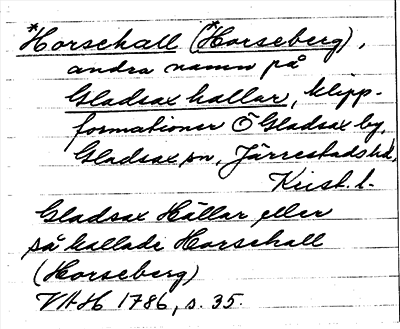 *Horsehall (*Horseberg),
andra namn på
Gladsax hallar, klipp-
formationer Ö Gladsax by,
Gladsax sn, Järrestads hd,
Krist. l.
Gladsax Hällar eller
så kallade Horsehall
(Horseberg)
VHH 1786, s. 35.